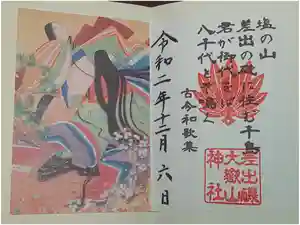 塩の山
差出の磯に住む千鳥
君が御代をば
八千代とぞ鳴く
古今和歌集
差出磯
大嶽山
神社
令和二年十二月六日